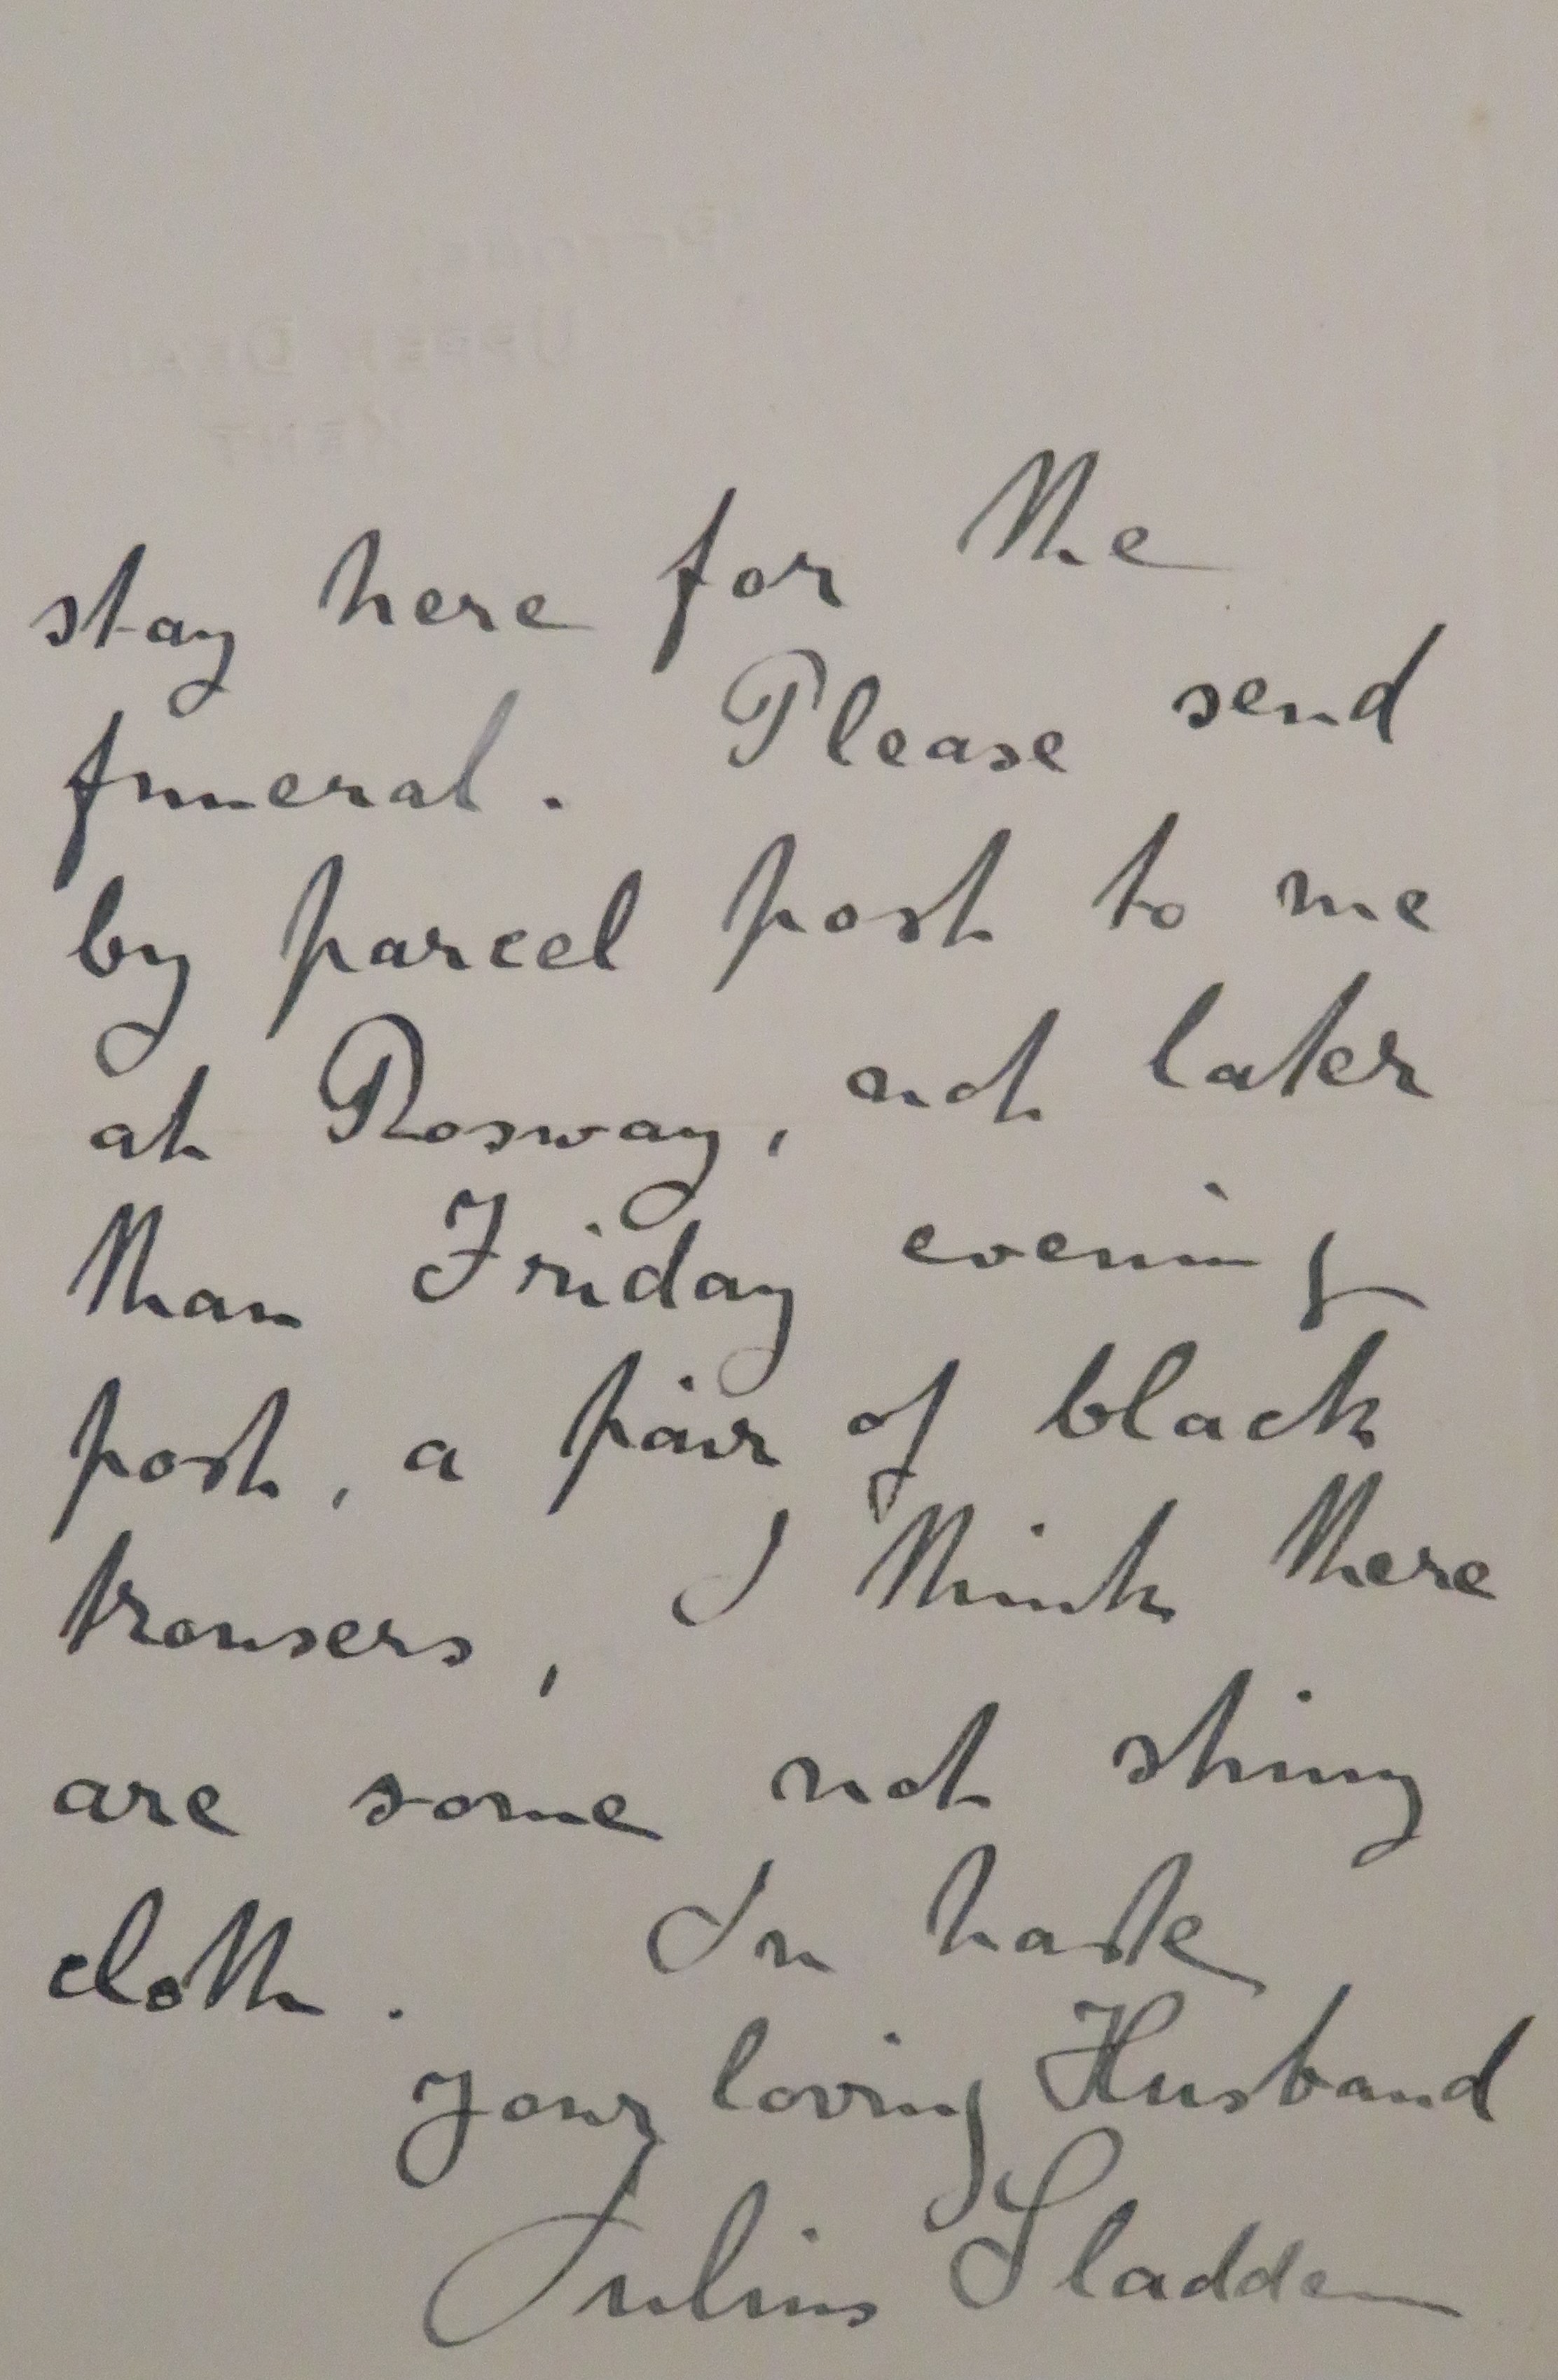 UPPER DEAL
KENT
stay here for the
funeral. Please send
by parcel post to me
at Rosway, not later
than Friday evening
post, a pair of black
trousers, I think there
are some not shiny
cloth. In haste
your loving Husband
Julius Sladden